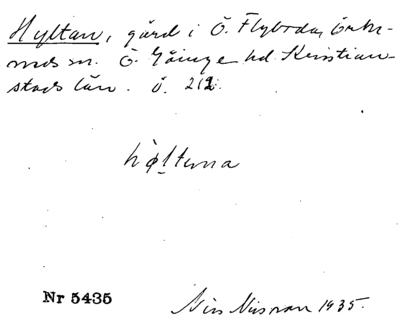 Hyltan, gård i Ö. Flyboda, Örke-
neds sn. Ö. Göinge hd Kristian-
stads län. ö. 212.
høltərna
Nr 5435
Nils Nilsson 1935.